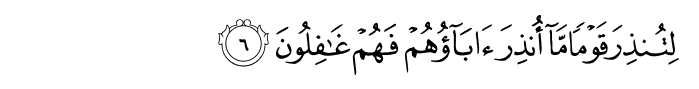 لِتُنذِرَ قَوْمًا مَّآ أُنذِرَ ءَابَآؤُهُمْ فَهُمْ غَـٰفِلُونَ ٦